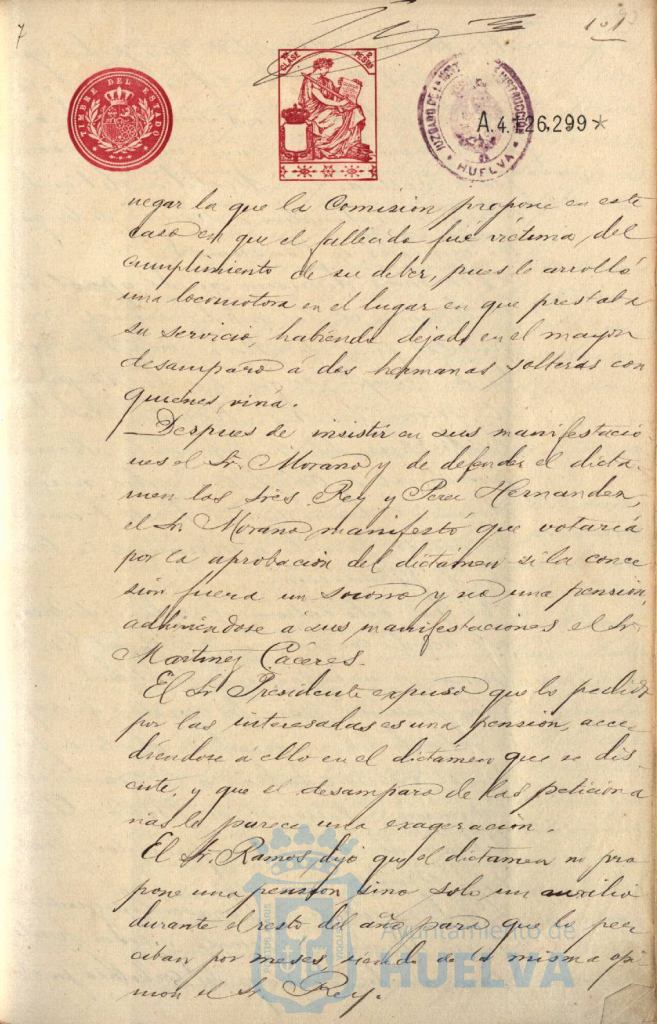 7
101
TIMBRE DEL ESTADO
CLASE
PESETAS
JUZGADO DE INSTRUCCION
HUELVA
A.4.126,299*
negar la que la Comision propone en este
caso en que el fallecido fué víctima del
cumplimiento de su deber, pues le arrolló
una locomotora en el lugar en que prestaba
su servicio, habiendo dejado en el mayor
desamparo á dos hermanas solteras con
quienes vivia.
Despues de insistir en sus manifestacio
nes el Sr. Morano y de defender el dicta
men los Sres Rey y Perez Hernandez,
el Sr. Morano manifestó que votaria
por la aprobacion del dictámen si la conce
sion fuera un socorro y no una pension,
adhiriéndose á sus manifestaciones el Sr
Martinez Cáceres.
El Sr. Presidente expuso que lo pedido
por las interesadas es una pension, acce
diéndose á ello en el dictámen que se dis
cute, y que el desamparo de las peticiona
rias le parece una exageracion.
El Sr. Ramos dijo que el dictamen no pro
pone una pension sino solo un auxilio
durante el resto del año para que lo per
ciban por meses, siendo de la misma opi
nion el Sr. Rey.
Ayuntamiento de
HUELVA